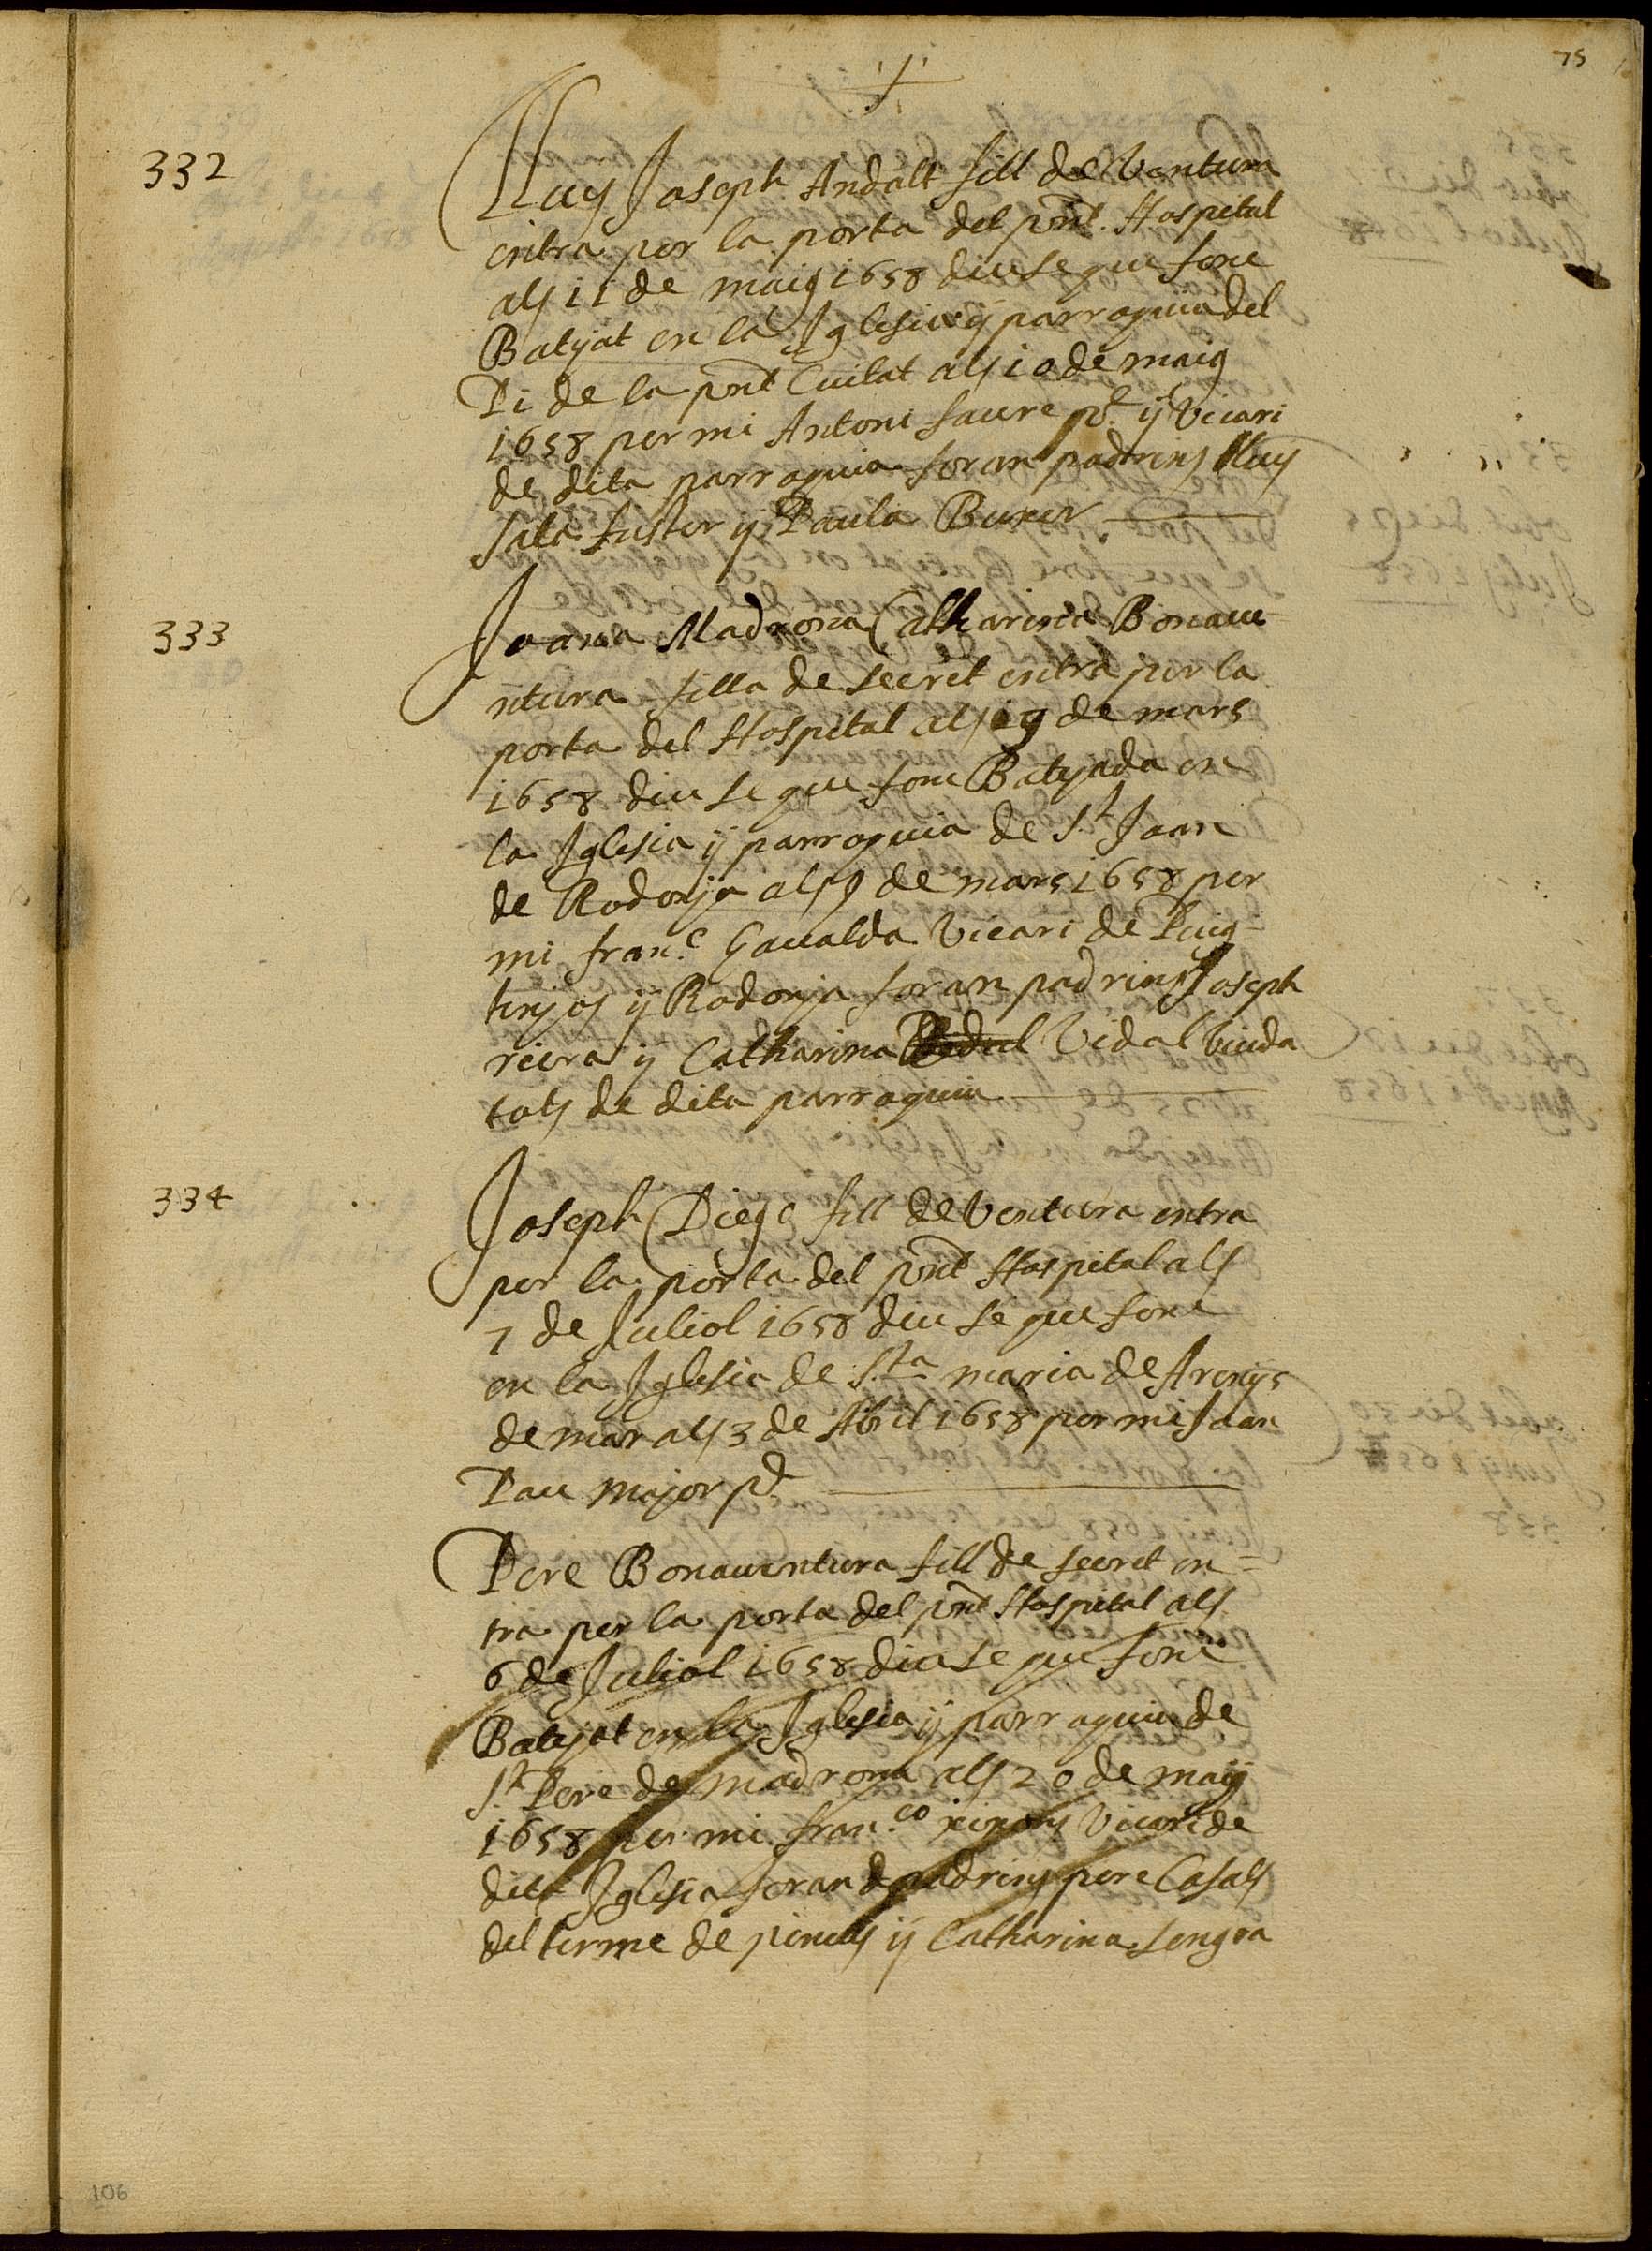 75
332
Lluys Joseph Andalt fill de Ventura
entra per la porta del pnt. Hospital
als 11 de maig 1658 diu se que fonc
Batyat en la Iglesia ÿ parroquia del
Pi de la pnt Ciutat als 10 de maig
1658 per mi Antoni faure pre. ÿ Vicari
de dita parroquia foran padrins lluys
sala fuster ÿ Paula
333
Joana Madrona Catharina Bonaue
ntura filla de secret entra per la
porta del Hospital als 19 de mars
1658 diu se que fonc Batyada en
la Iglesia ÿ parroquia de St Joan
de Rodonja als 9 de mars 1658 per
mi fran.c Gaualda Vicari de Puig-
tinjos ÿ Rodonja foran padrins Joseph
riera ÿ Catharina Vidal viuda
tots de dita parroquia
334
Joseph Diego fill de Ventura entra
per la porta del pnt Hospital als
7 de Juliol 1658 diu se que fonc
en la Iglesia de Sta maria de Arenÿs
de mar als 3 de Abril 1658 per mi Joan
Pau Major pre
Pere Bonauentura fill de secret en=
tra per la porta del pnt Hospital als
6 de Juliol 1658 diu se que fonc
Batyat en la Iglesia ÿ parroquia de
St. Pere de madrona als 20 de maÿ
1658 per mi fran.co Vicari de
dita Iglesia foran padrins pere Casals
del terme de ÿ Catharina
106